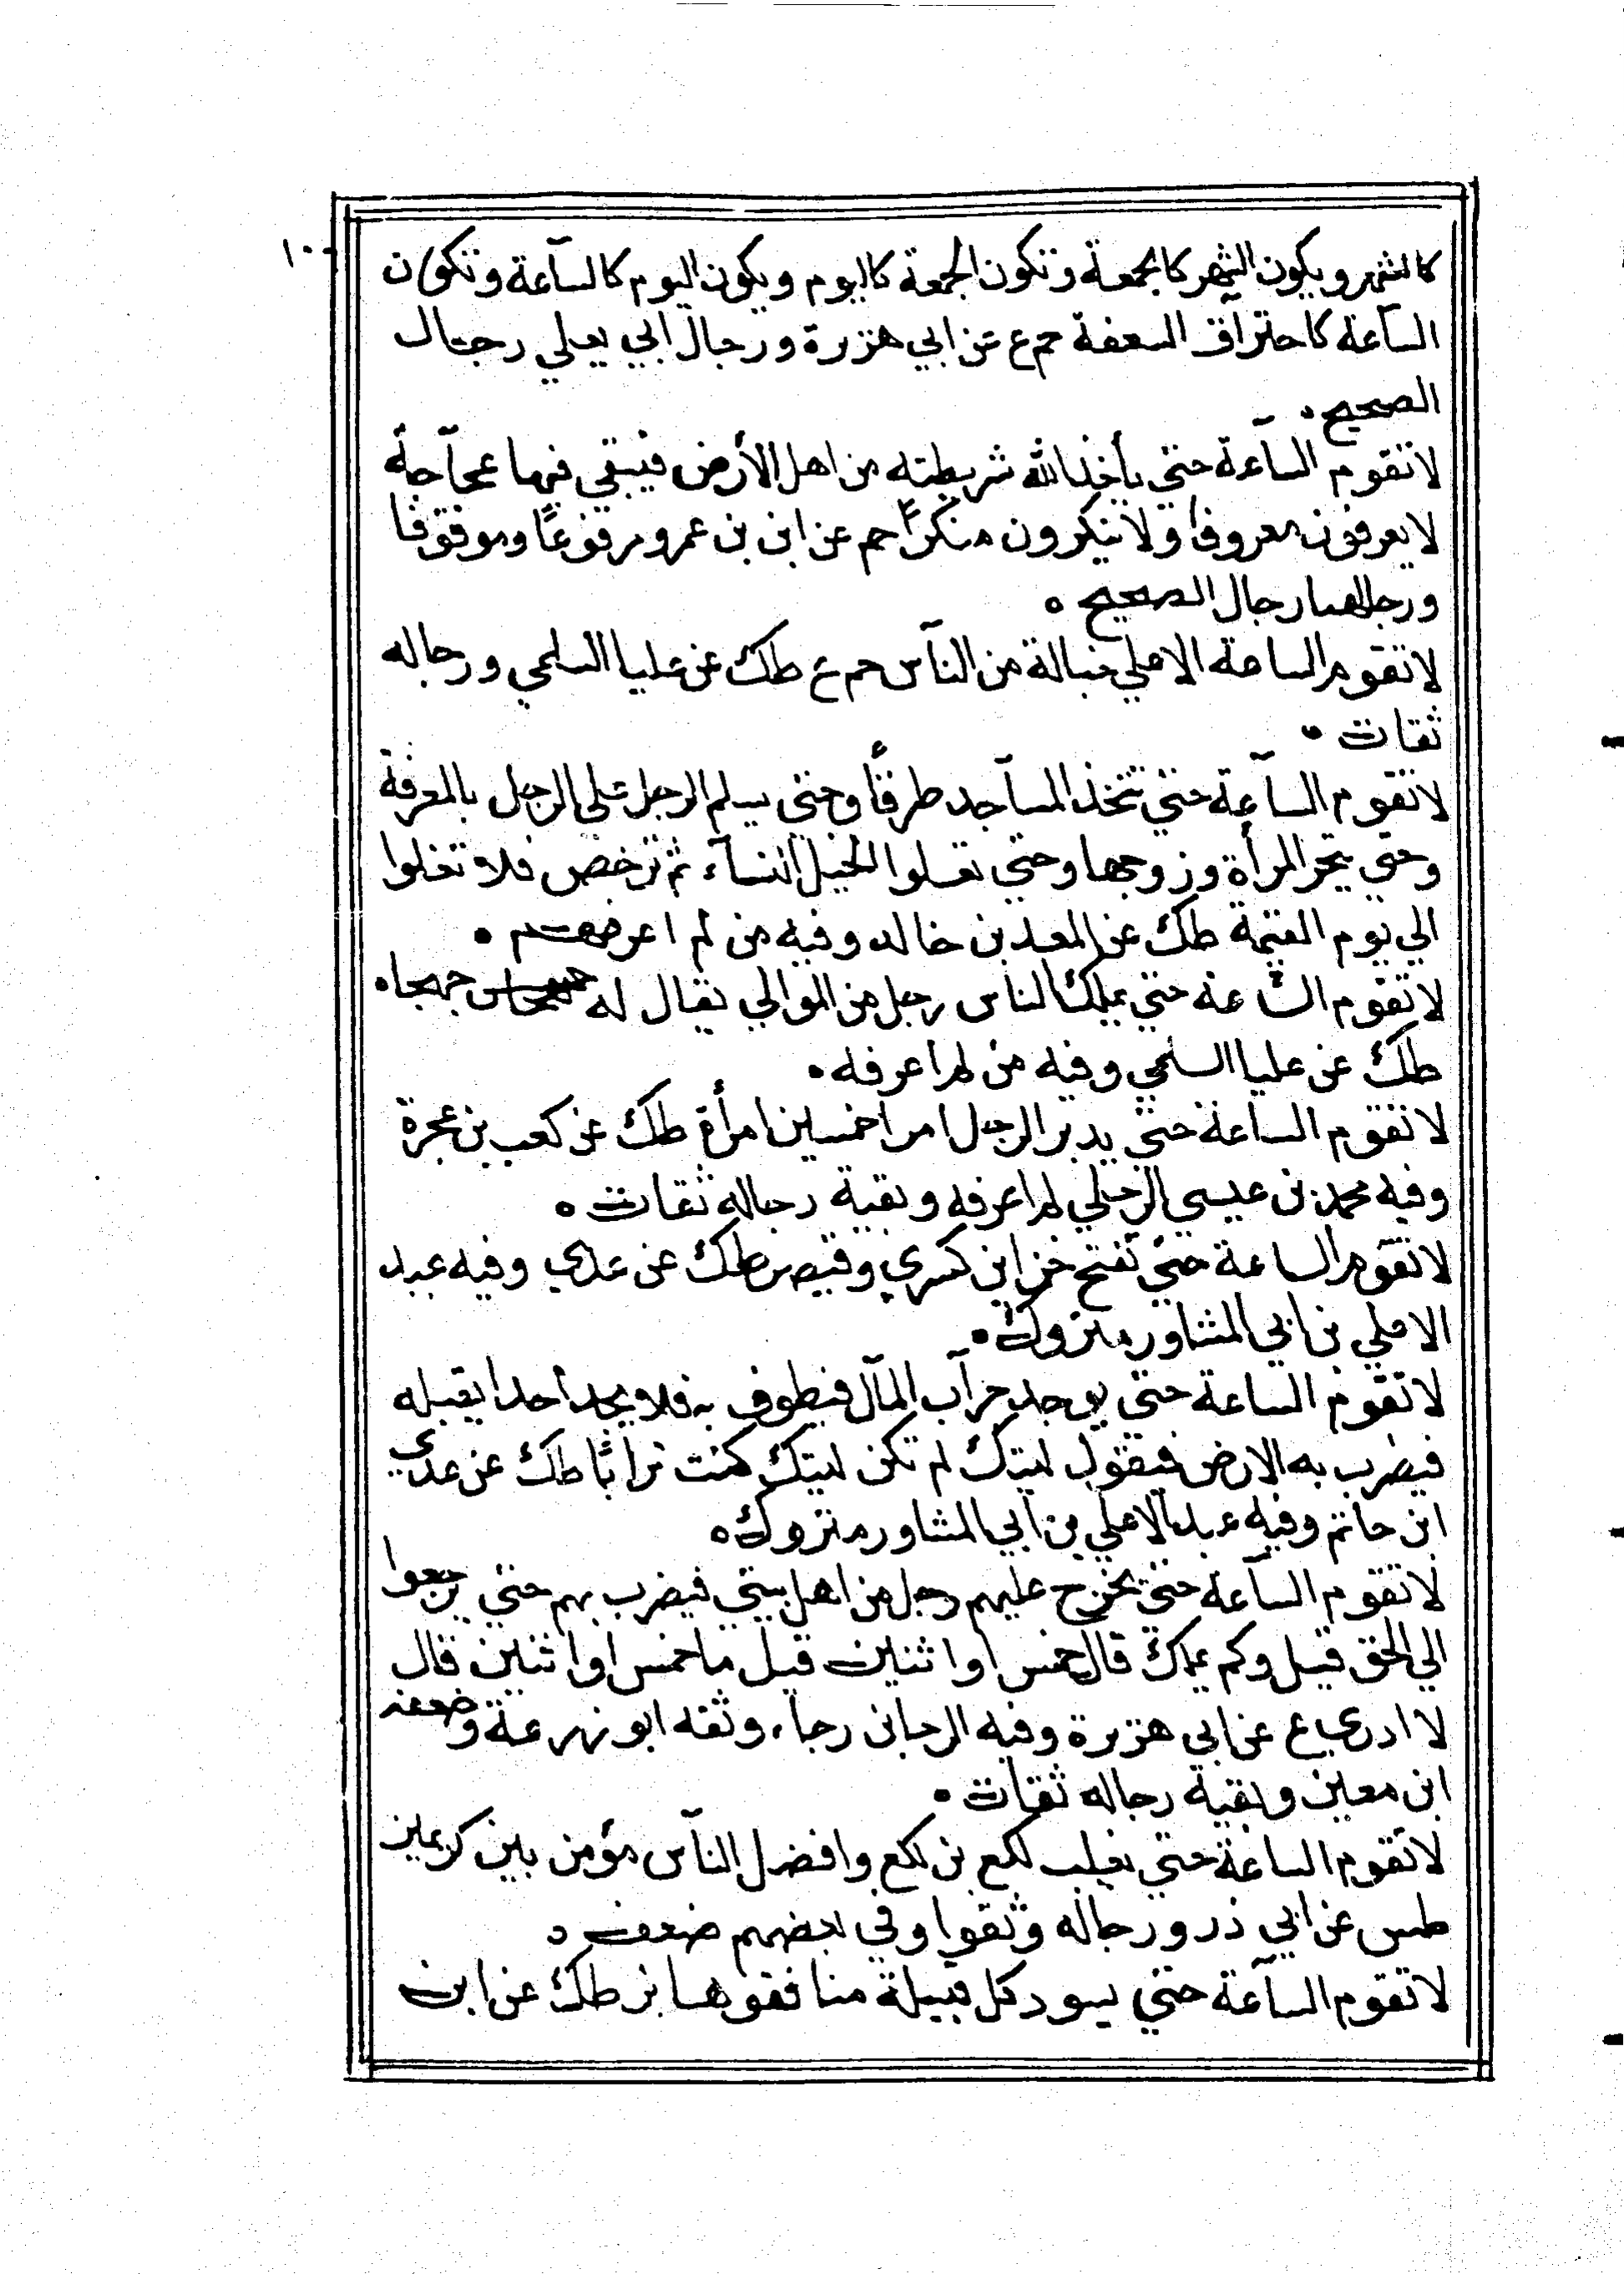 ١٠٠
كالشهر ويكون الشهر كالجمعة وتكون الجمعة كاليوم ويكون اليوم كالساعة وتكون
الساعة كاحتراق السعفة حم ع عن ابي هريرة ورجال ابي يعلي رجال
الصحيح ٥
لا تقوم الساعة حتي يأخذ الله شريطته من اهل الأرض فيبقي فيها عجاجة
لا يعرفون معروفا ولا ينكرون منكراً حم عن ابن بن عمرو مرفوعًا وموقوفا
ورجالهما رجال الصحيح ٥
لا تقوم الساعة الا علي حبالة من الناس حم ع طك عن عليا السلمي ورجاله
ثقات ٥
لا تقوم الساعة حتي تتخذ المساجد طرقاً وحتي يسلم الرجل علي الرجل بالمعرفة
وحتي يتجر المرأة وزوجها وحتي تغلوا الخيل النساء ثم ترخص فلا تغلوا
الي يوم القيمة طك عن المعد بن خالد وفيه من لم اعرفهم ٥
لا تقوم الساعة حتي يملك الناس رجل من الموالي يقال له جهجاه
طك عن عليا السلمي وفيه من لم اعرفه ٥
لا تقوم الساعة حتي يدبر الرجل امر اخمسين امرأة طك عن كعب بن عجرة
وفيه محمد بن عيسي الرحلي لم اعرفه وبقية رجاله ثقات ٥
لا تقوم الساعة حتي تفتح خزاين كسري وقيصر طك عن عدي وفيه عبد
الاعلي بن ابي المشاور متروك ٥
لا تقوم الساعة حتي يوجد جراب المال فيطوف به فلا يجد احدا يقبله
فيضرب به الارض فيقول ليتك لم تكن ليتك كنت ترابًا طك عن عدي
ابن حاتم وفيه عبد الاعلي بن ابي المشاور متروك ٥
لا تقوم الساعة حتي يخرج عليهم رجل من اهل بيتي فيضرب بهم حتي يرجعوا
الي الحق قيل وكم يملك قال خمس او اثنين قيل ما خمس او اثنين قال
لا ادري ع عن ابي هريرة وفيه الرجانى رجاء وثقه ابو زرعة وضعفه
ابن معين وبقية رجاله ثقات ٥
لا تقوم الساعة حتي يغلب لكع بن لكع وافضل الناس مؤمن بين كريمين
طس عن ابي ذر ورجاله وثقوا وفي بعضهم ضعف ٥
لا تقوم الساعة حتي يسود كل قبيلة منافقوها بز طك عن ابن